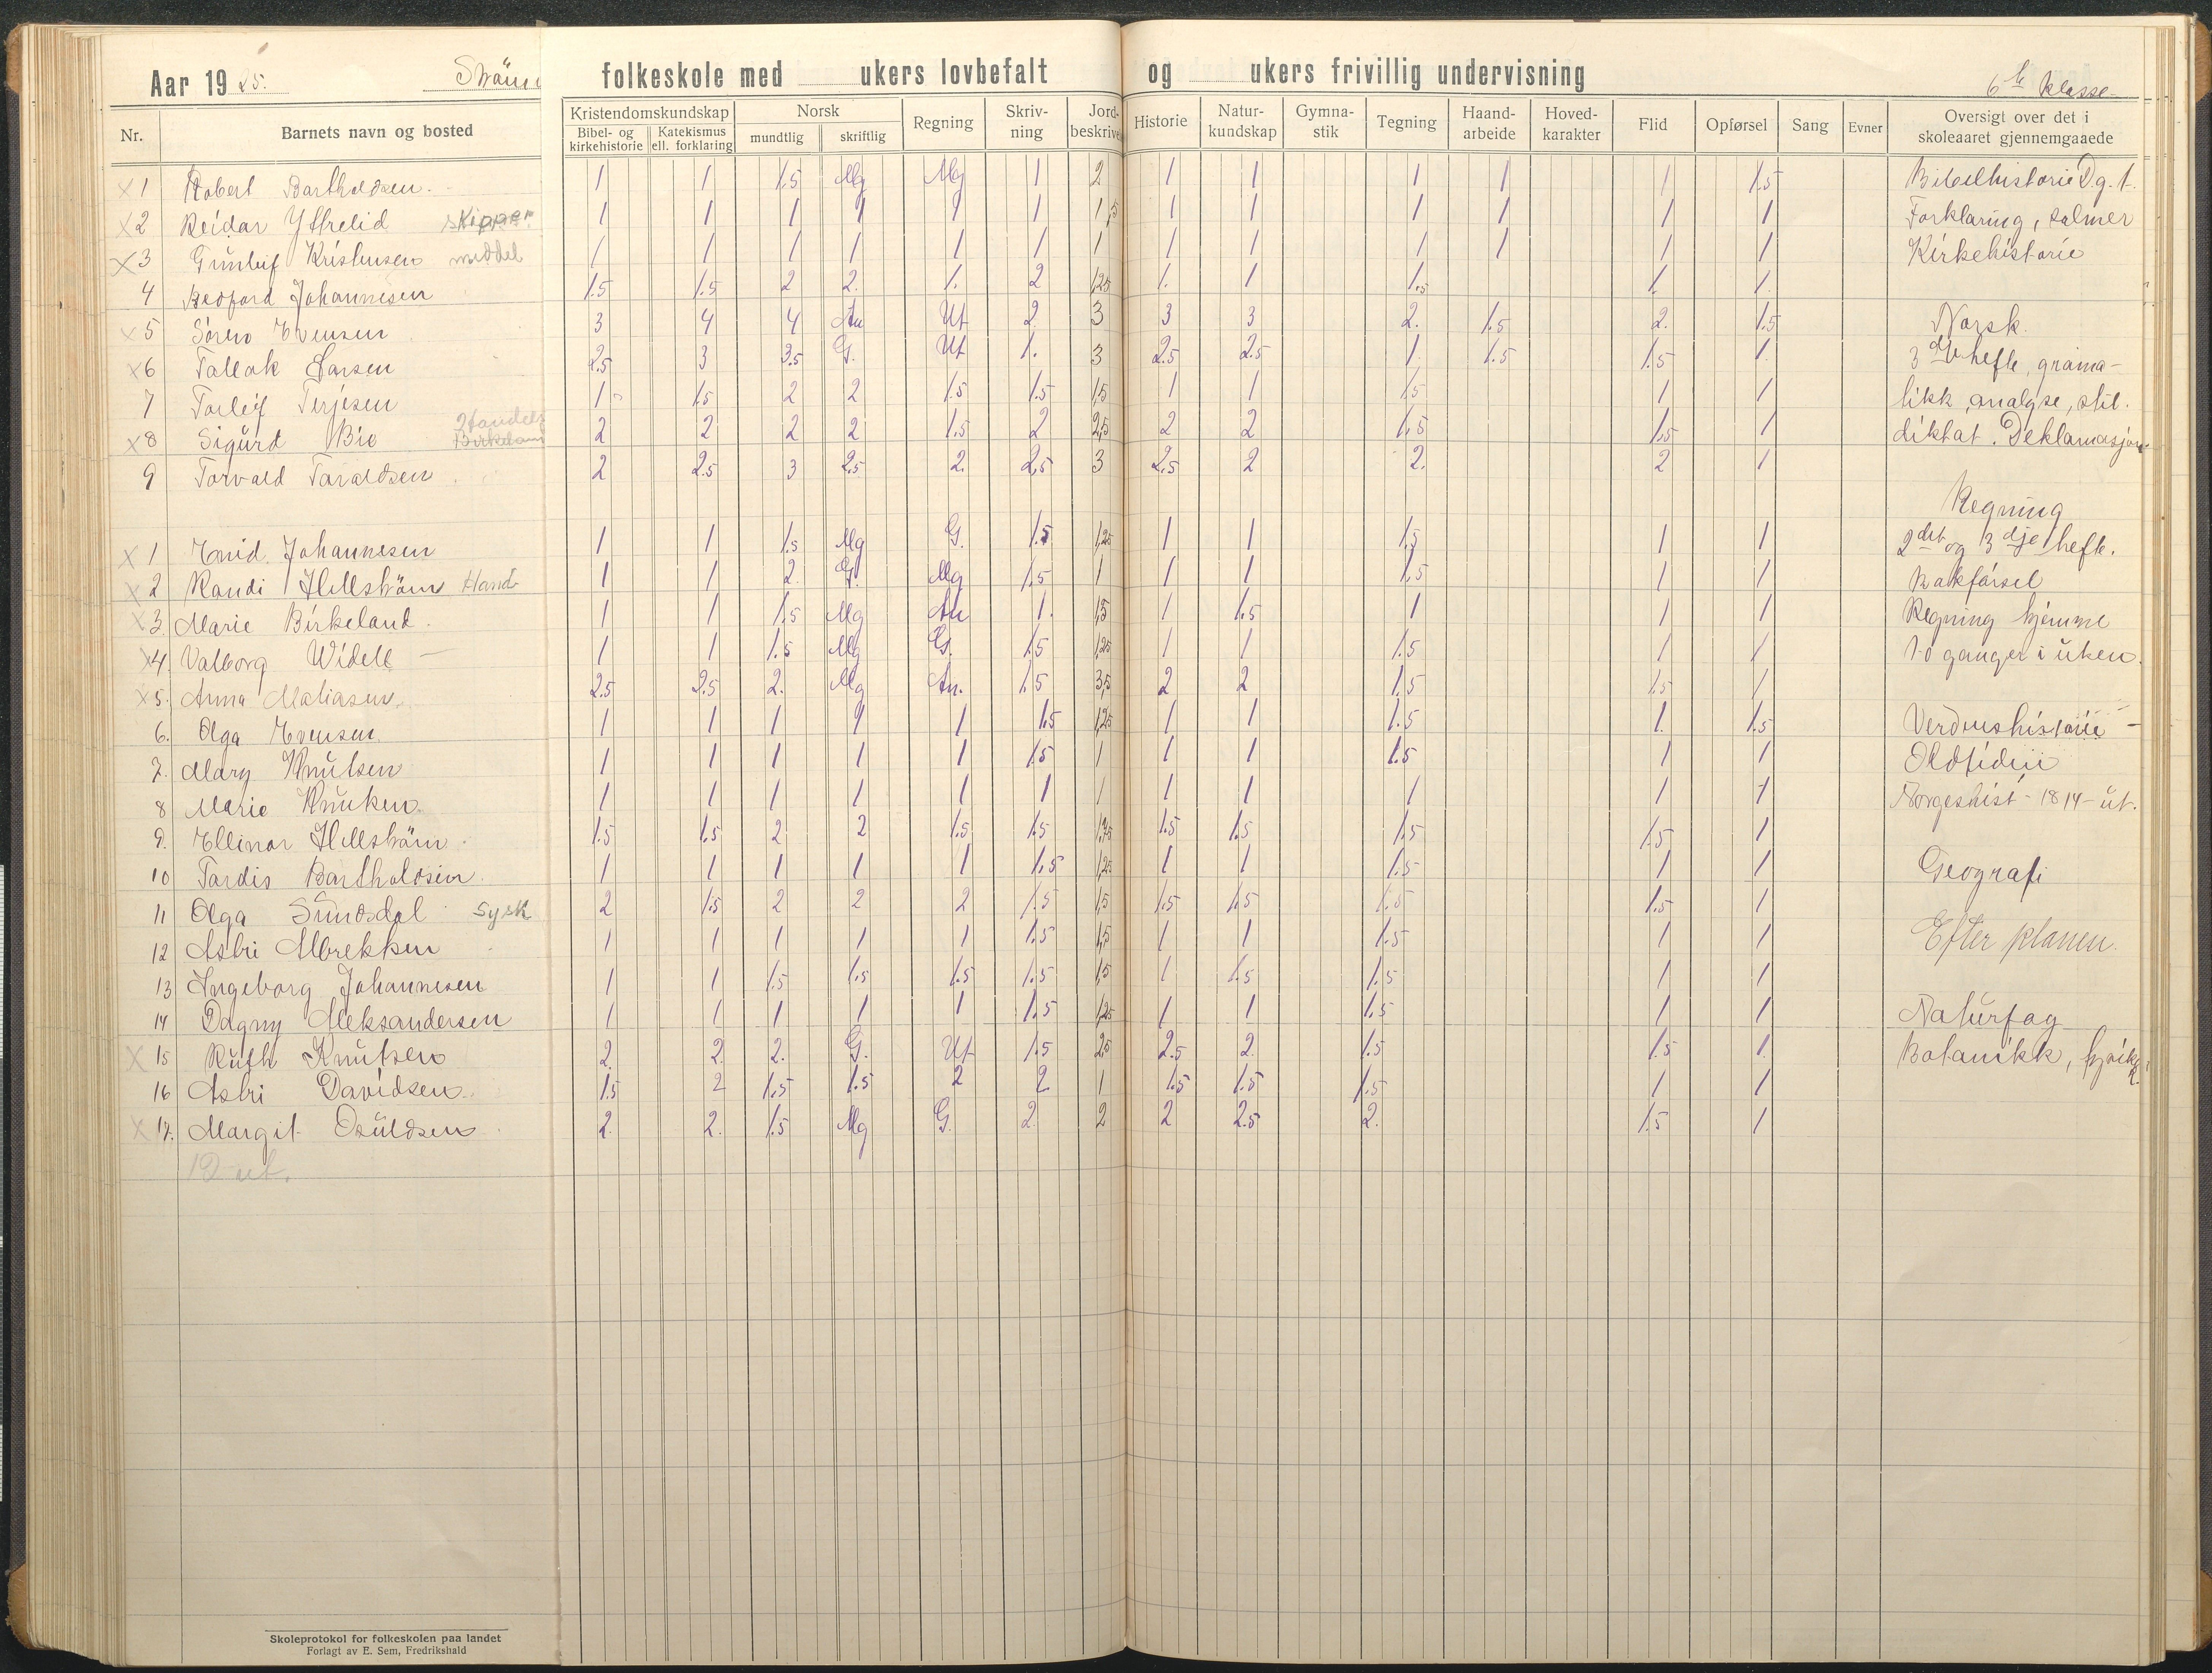 Aar 1925. Strøm folkeskole med ukers lovbefalt og ukers frivillig undervisning 6te klasse
Nr. Barnets navn og bosted Kristendomskundskap Bibel- og kirkehistorie Katekismus ell. forklaring Norsk mundtlig skriftlig Regning Skriv-ning Jord-beskrive Historie Natur-kundskap Gymna-stik Tegning Haand-arbeide Hoved-karakter Flid Opførsel Sang Evner Oversigt over det i skoleaaret gjennemgaaede
x 1 Robert Bartholdsen. 1 1 1.5 Mg Mg 1 2 1 1 1 1 1 1.5 Bibelhistorie D.g.t.
x 2 Reidar Yttrelid skipper 1 1 1 1 1 1 1,5 1 1 1 1 1 1 Forklaring, salmer
x 3 Gunleif Kristensen middel 1 1 1 1 1 1 1 1 1 1 1 1 1 Kirkehistorie
4 Bedford Johannesen 1.5 1.5 2 2. 1. 2 1,25 1. 1 1.5 1. 1.
x 5 Søren Evensen 3 4 4 An Ut 2. 3 3 3 2. 1.5 2. 1.5 Norsk.
x 6 Tallak Larsen 2.5 3 3.5 G. Ut 1. 3 2.5 2.5 1 1.5 1.5 1. 3dje hefte, grama-
7 Torleif Terjesen 1 1.5 2 2 1.5 1.5 1,5 1 1 1.5 1 1 tikk, analyse, stil.
x 8 Sigurd Bie Handels Birkeland 2 2 2 2 1.5 2 2,5 2 2 1.5 1.5 1 diktat. Deklamasjon.
9 Torvald Taraldsen 2 2.5 3 2.5 2. 2.5 3 2.5 2 2. 2 1
Regning
x 1 Enid Johannesen 1 1 1.5 Mg G. 1.5 1,25 1 1 1.5 1 1 2det og 3dje hefte.
x 2 Randi Hellström Hand 1 1 2. G. Mg 1.5 1 1 1 1.5 1 1 Bokførsel
x 3. Marie Birkeland. 1 1 1.5 Mg An 1. 1,5 1 1.5 1 1 1 Regning hjemme
x 4. Valborg Widell 1 1 1.5 Mg G. 1.5 1,25 1 1 1.5 1 1 to ganger i uken.
x 5. Anna Matiasen. 2.5 2.5 2. Mg An. 1.5 3,5 2 2 1.5 1.5 1
6. Olga Evensen 1 1 1 1 1 1.5 1,25 1 1 1.5 1. 1.5 Verdenshistorie
7. Mary Knutsen 1 1 1 1 1 1.5 1 1 1 1.5 1 1 Oldtiden
8 Marie Knutsen. 1 1 1 1 1 1 1 1 1 1 1 1 Norgeshist - 1814 - ut.
9. Ellinor Hellström. 1.5 1.5 2 2 1.5 1.5 1,75 1.5 1.5 1.5 1.5 1
10 Tordis Bartholdsen. 1 1 1 1 1 1.5 1,25 1 1 1.5 1 1 Geografi
11 Olga Sundsdal sysk 2 1.5 2 2 2 1.5 1,5 1.5 1.5 1.5 1.5 1
12 Astri Albrektsen 1 1 1 1 1 1.5 1,5 1 1 1.5 1 1 Efter planen.
13 Ingeborg Johannesen 1 1 1.5 1.5 1.5 1.5 1,5 1 1.5 1.5 1 1
14 Dagny Aleksandersen 1 1 1 1 1 1.5 1,25 1 1 1.5 1 1 Naturfag
x 15 Ruth Knutsen 2. 2. 2. G. Ut 1.5 2,5 2.5 2. 1.5 1.5 1. Botanikk, fysikk,
16 Astri Davidsen. 1.5 2 1.5 1.5 2 2 1 1.5 1.5 1.5 1 1
x 17. Margit Osuldsen 2. 2. 1.5 Mg G. 2. 2 2 2.5 2. 1.5 1
12 ut.
Skoleprotokol for folkeskolen paa landet
Forlagt av E. Sem, Fredrikshald